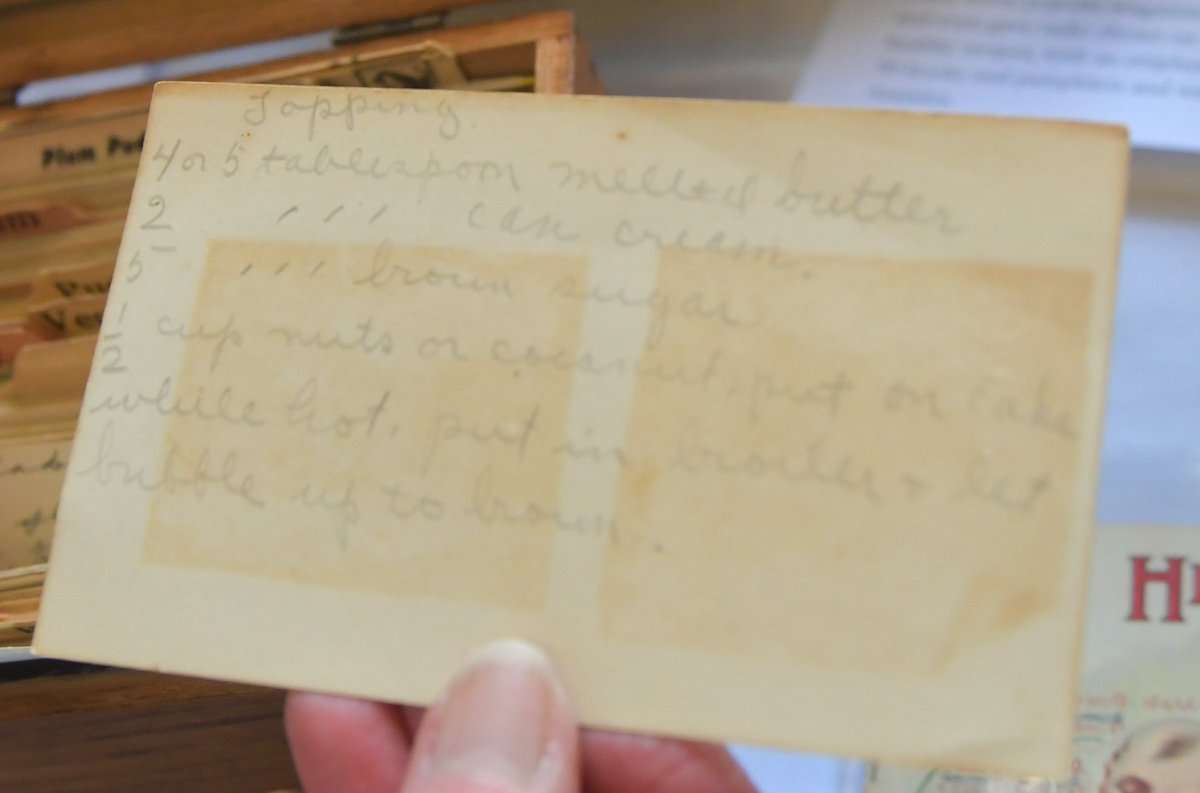 Topping.
4 or 5 tablespoon melted butter
2 ,,, can cream.
5 ,,, brown sugar
1/2 cup nuts or cocanut. put on cake
while hot. put in broiler + let
bubble up to brown..
Plum
H